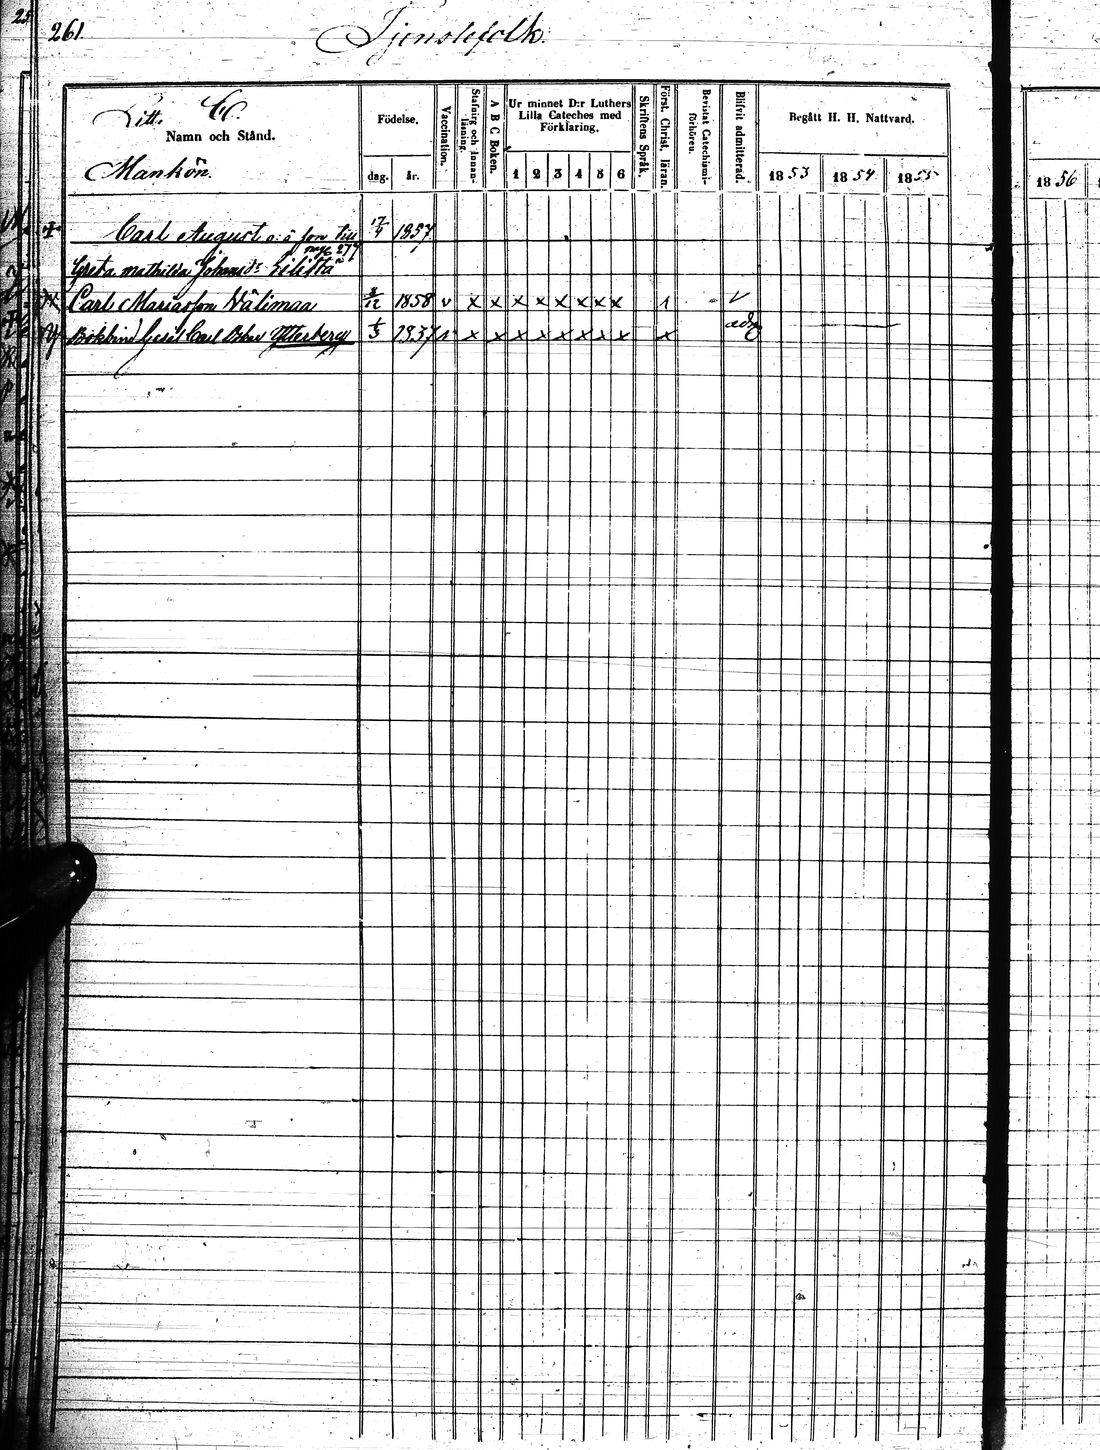 261.
Tjenstefolk.
Litt. C.
Namn och Stånd.
Mankön.
Födelse.
dag. år.
Vaccination.
Stafning och Innanläsning.
A B C Boken.
Ur minnet D:r Luthers
Lilla Cateches med
Förklaring.
1 2 3 4 5 6
Skriftens Språk.
Först. Christ. läran.
Bevistat Catechismiförhören.
Blifvit admitterad.
Begått H. H. Nattvard.
1853 1854 1855
1856
Carl August o: ä son till 17/9 1857
277
Greta Mathilda Johansdr Lilistä
Carl Mariasson Wälimaa 8/12 1858 v x x x x x x x x 1 v
Bokbind Gesäl Carl Ytterberg 1837 x x x x x x x x x adm